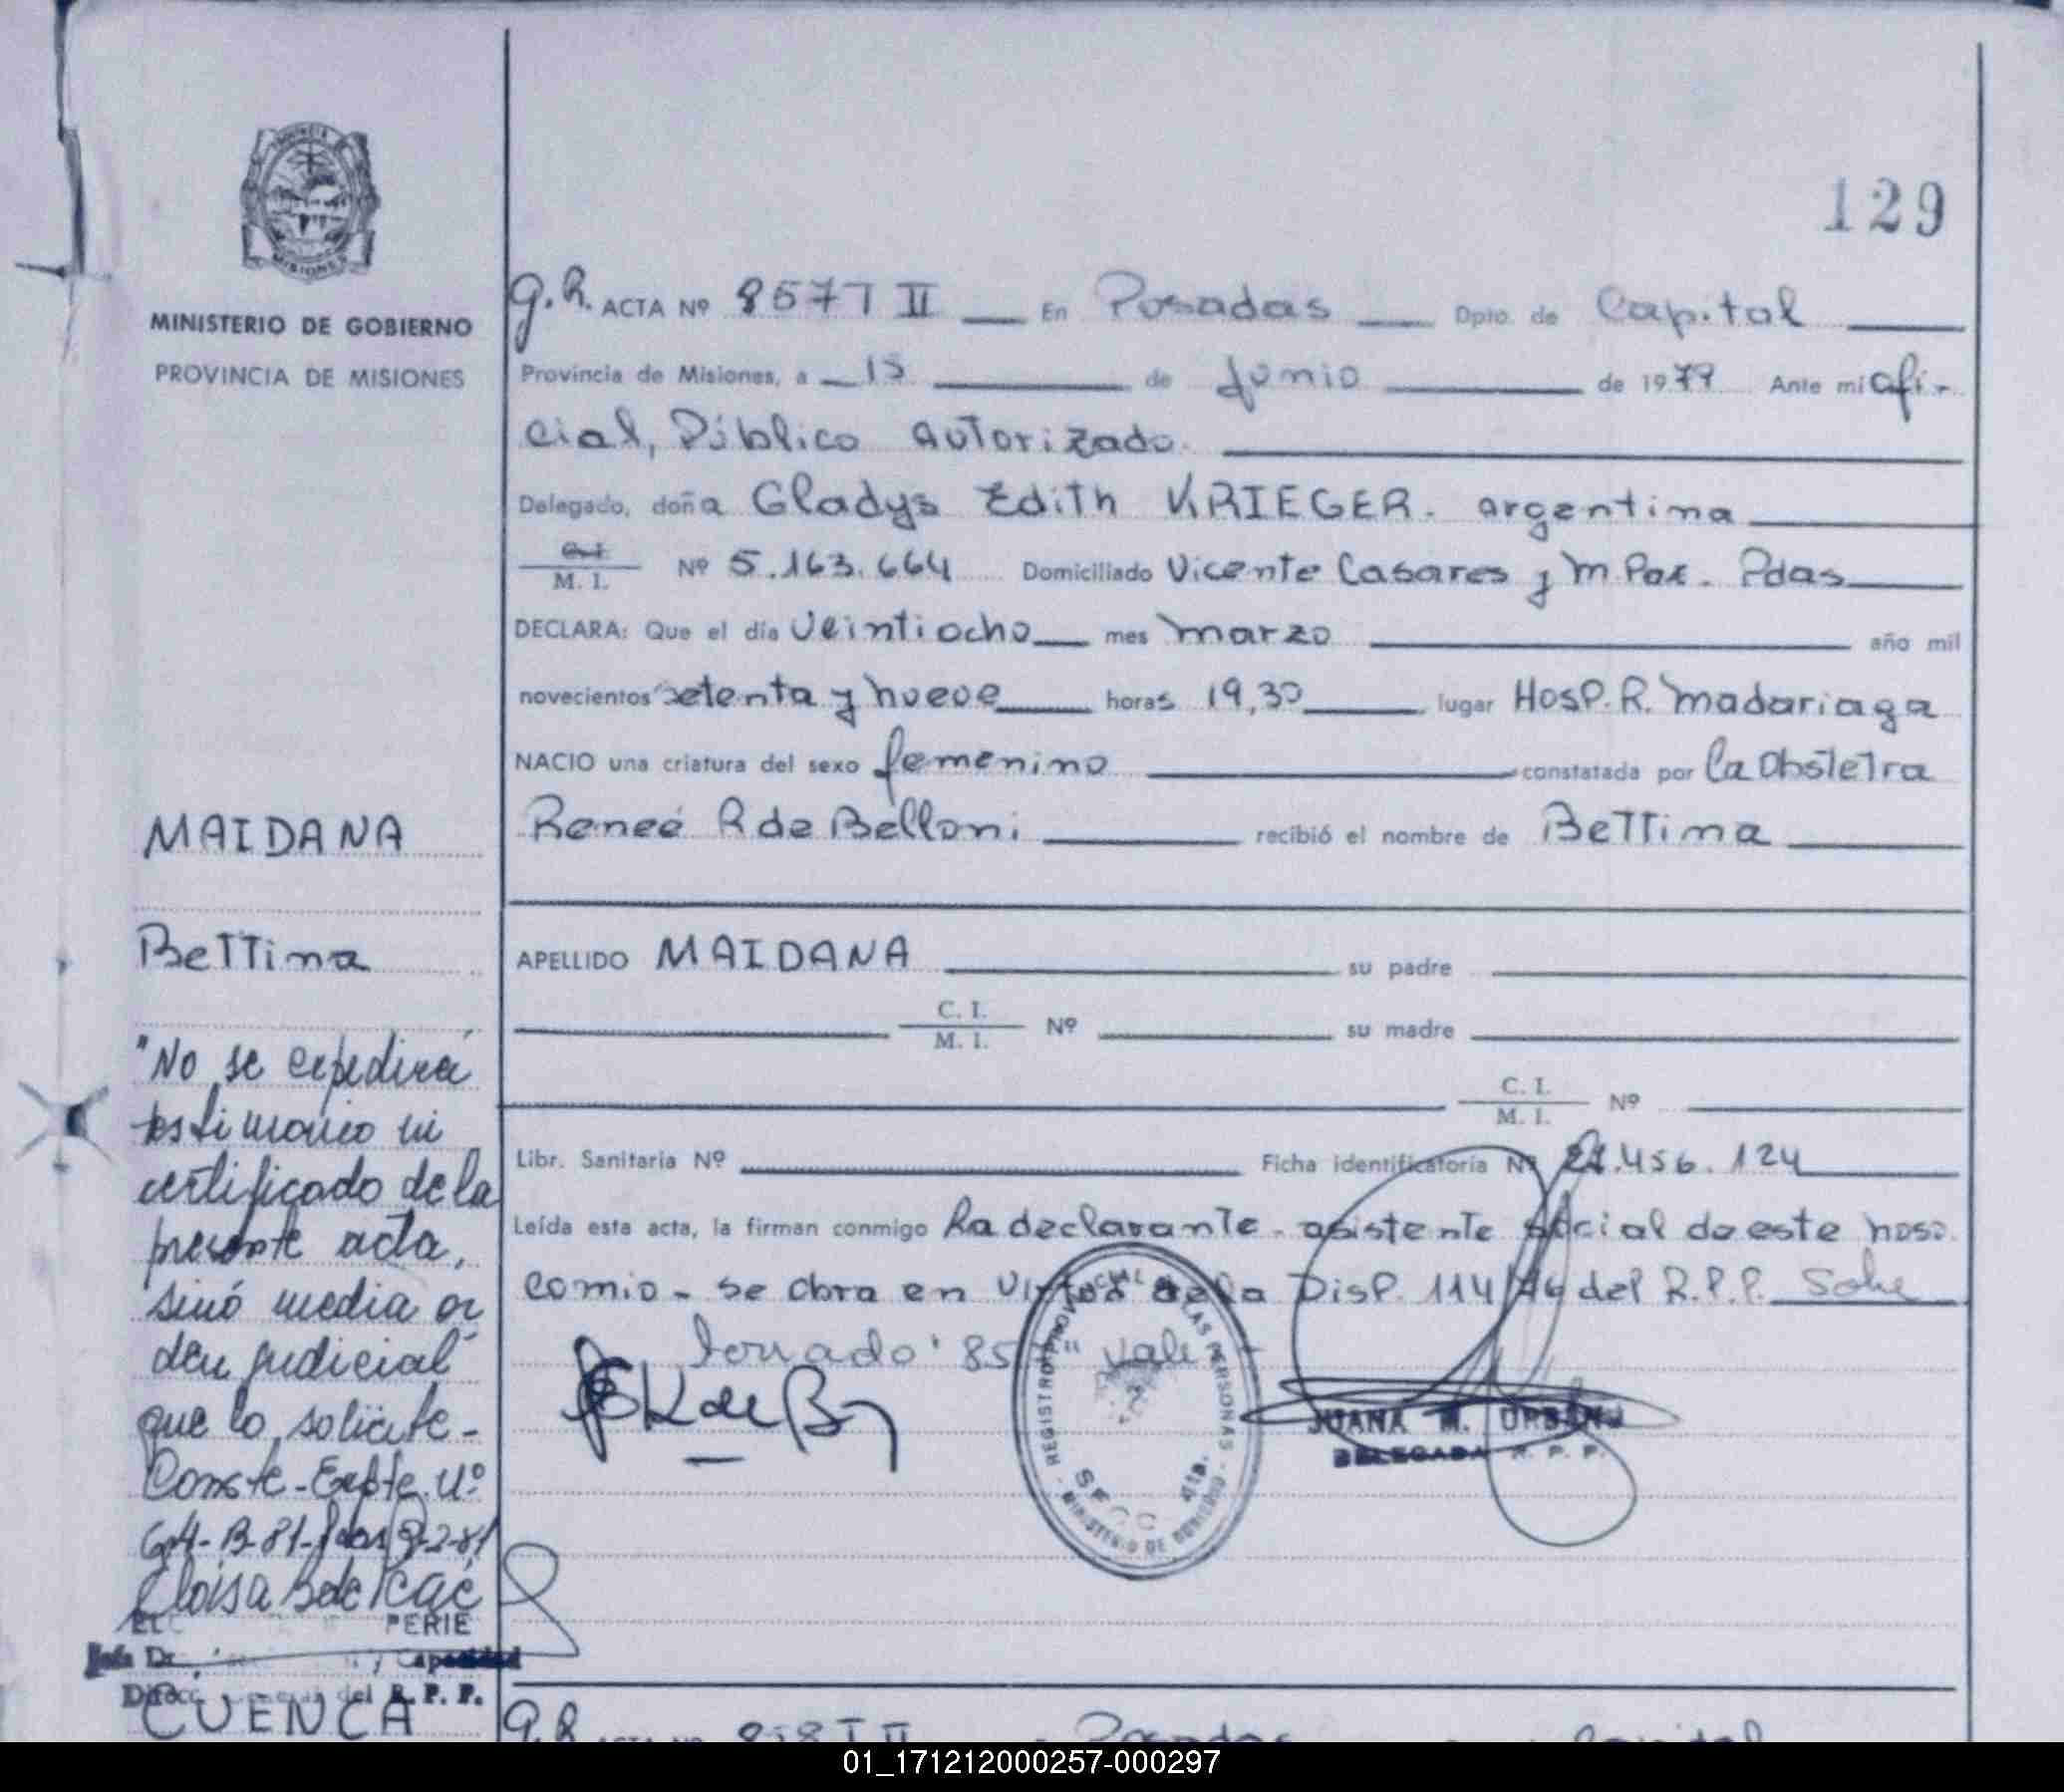 129
MINISTERIO DE GOBIERNO
PROVINCIA DE MISIONES
MISIONES
g.R. ACTA Nº 857 T II En Posadas Dpto. de Capital
Provincia de Misiones, a 15 de junio de 1979 Ante mi Ofi-
cial, Público Autorizado.
Delegado, doña Gladys Edith KRIEGER. argentina
C.I. M. I. Nº 5.163.664 Domiciliado Vicente Casares y M. Paz. Pdas
DECLARA: Que el día Veintiocho mes marzo año mil
novecientos setenta y nueve horas 19,30 lugar Hosp. R. Madariaga
NACIO una criatura del sexo femenino constatada por la Obstetra
Reneé R de Belloni recibió el nombre de Bettina
APELLIDO MAIDANA su padre
C. I. M. I. Nº su madre
C. I. M. I. Nº
Libr. Sanitaria Nº Ficha identificatoria Nº 27.456.124
Leída esta acta, la firman conmigo la declarante - asistente social de este noso
comio - se obra en virtud de la Disp. 114/76 del R.P.P. Sobre
borrado "857" vale
REGISTRO PROVINCIAL DE LAS PERSONAS
MINISTERIO DE GOBIERNO
JUANA M. URBANO
DELEGADA R. P. P.
MAIDANA
Bettina
"No se expedirá
testimonio ni
certificado de la
presente acta,
sinó media or
den judicial"
que lo solicite-
Conste-Expte. Nº
Eloisa B de
PERIE
Jefa Capacidad
del R. P. P.
CUENCA
g.R. ACTA Nº 858 T II Posadas Capital
01_171212000257-000297